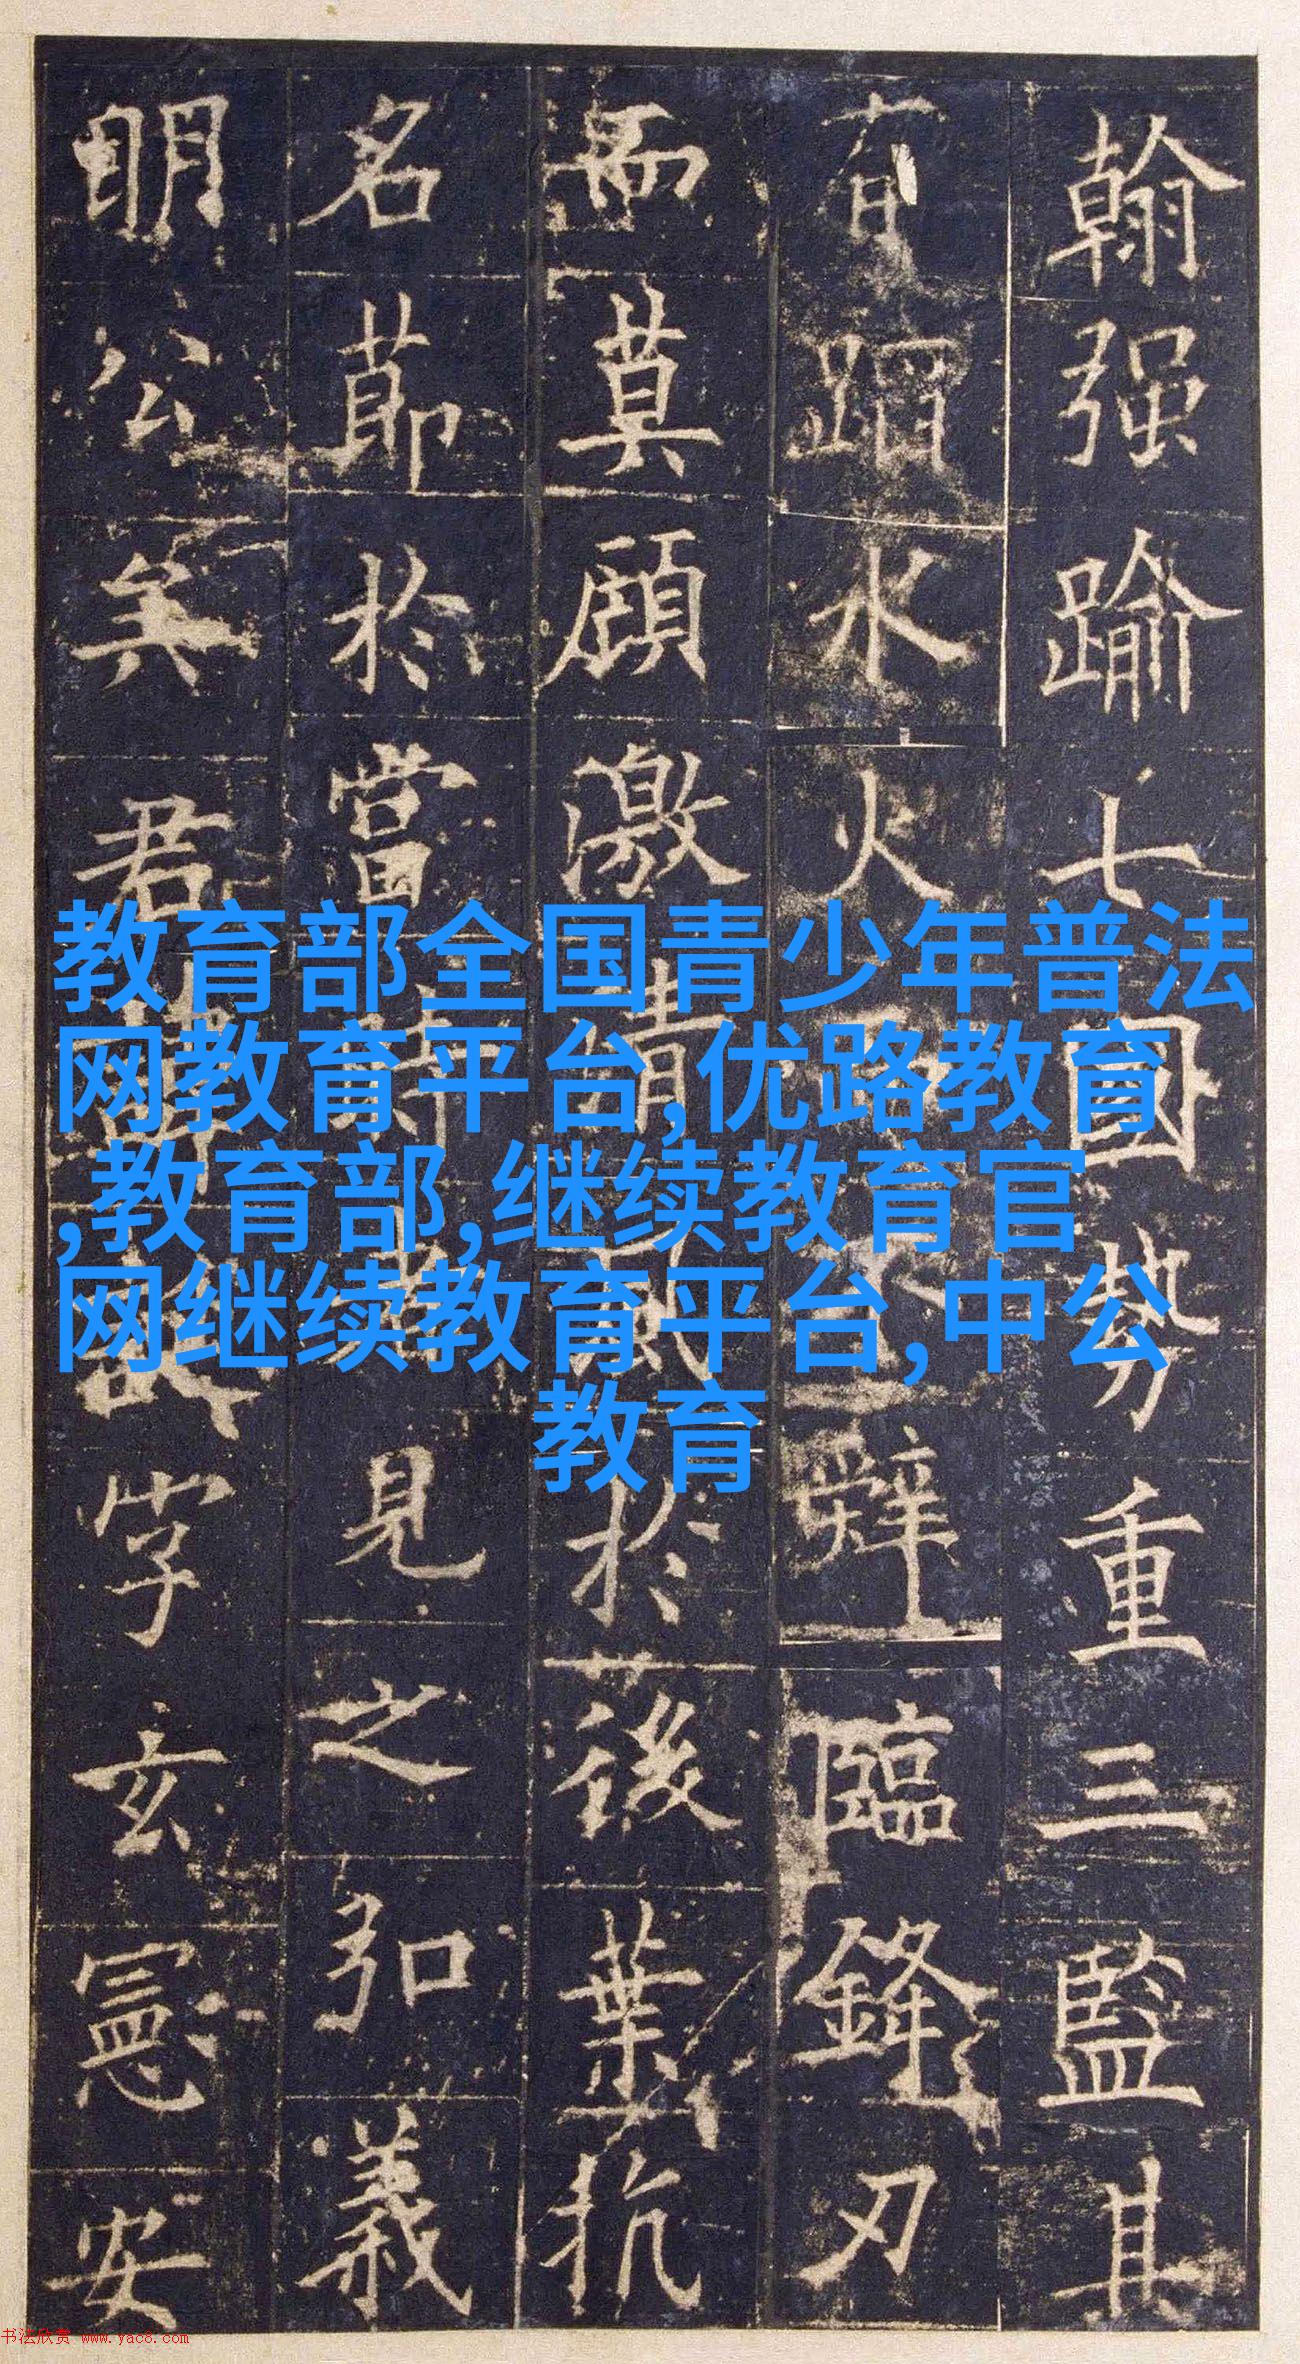 翰强踰七國勢重三監其
有蹈水火辭臨鋒刃
而莫顧激清風於後葉抗
名莭於當時見之弘義
明公矣君諱誕字玄憲安
教育部全国青少年普法
网教育平台,优路教育
,教育部,继续教育官
网继续教育平台,中公
教育
书法欣赏 www.yac8.com